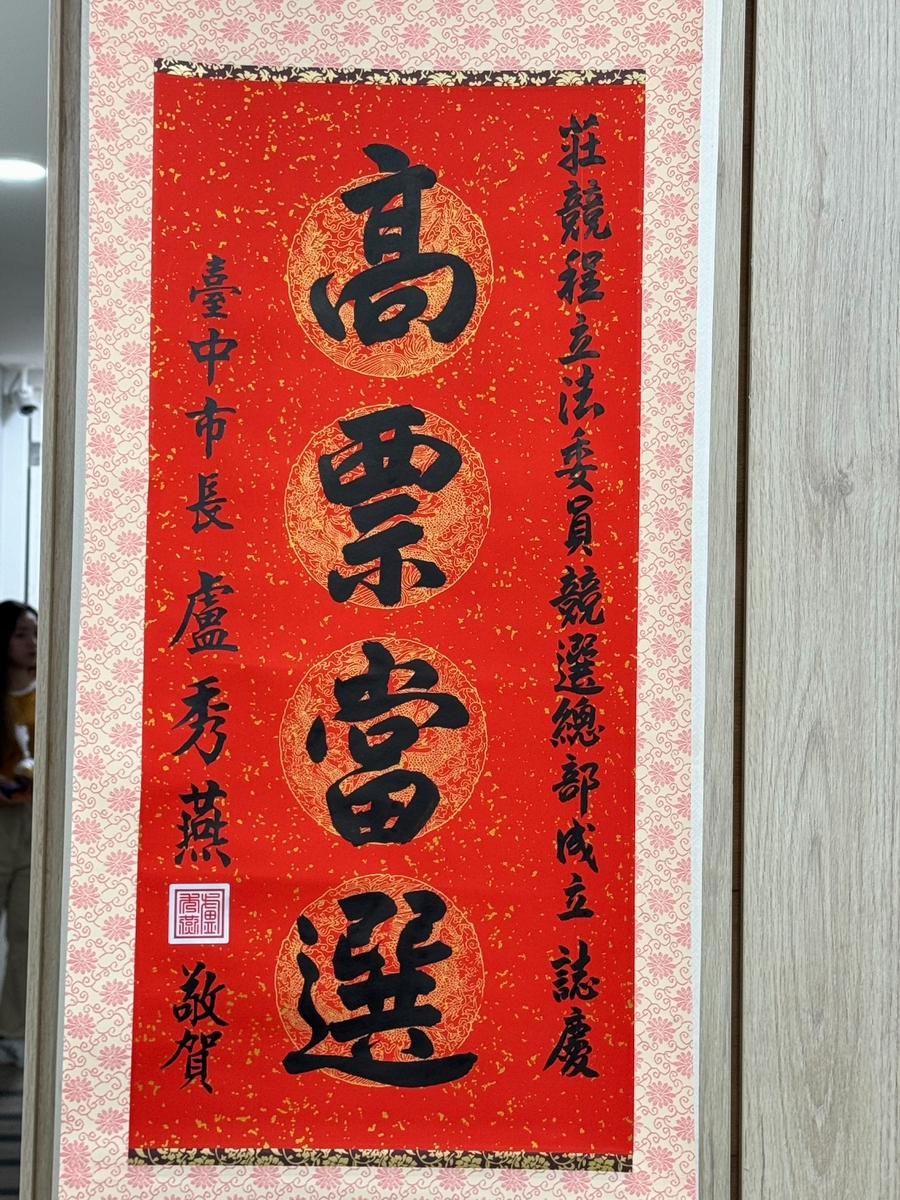 莊競程立法委員競選總部成立 誌慶
高票當選
臺中市長 盧秀燕 敬賀
盧秀燕